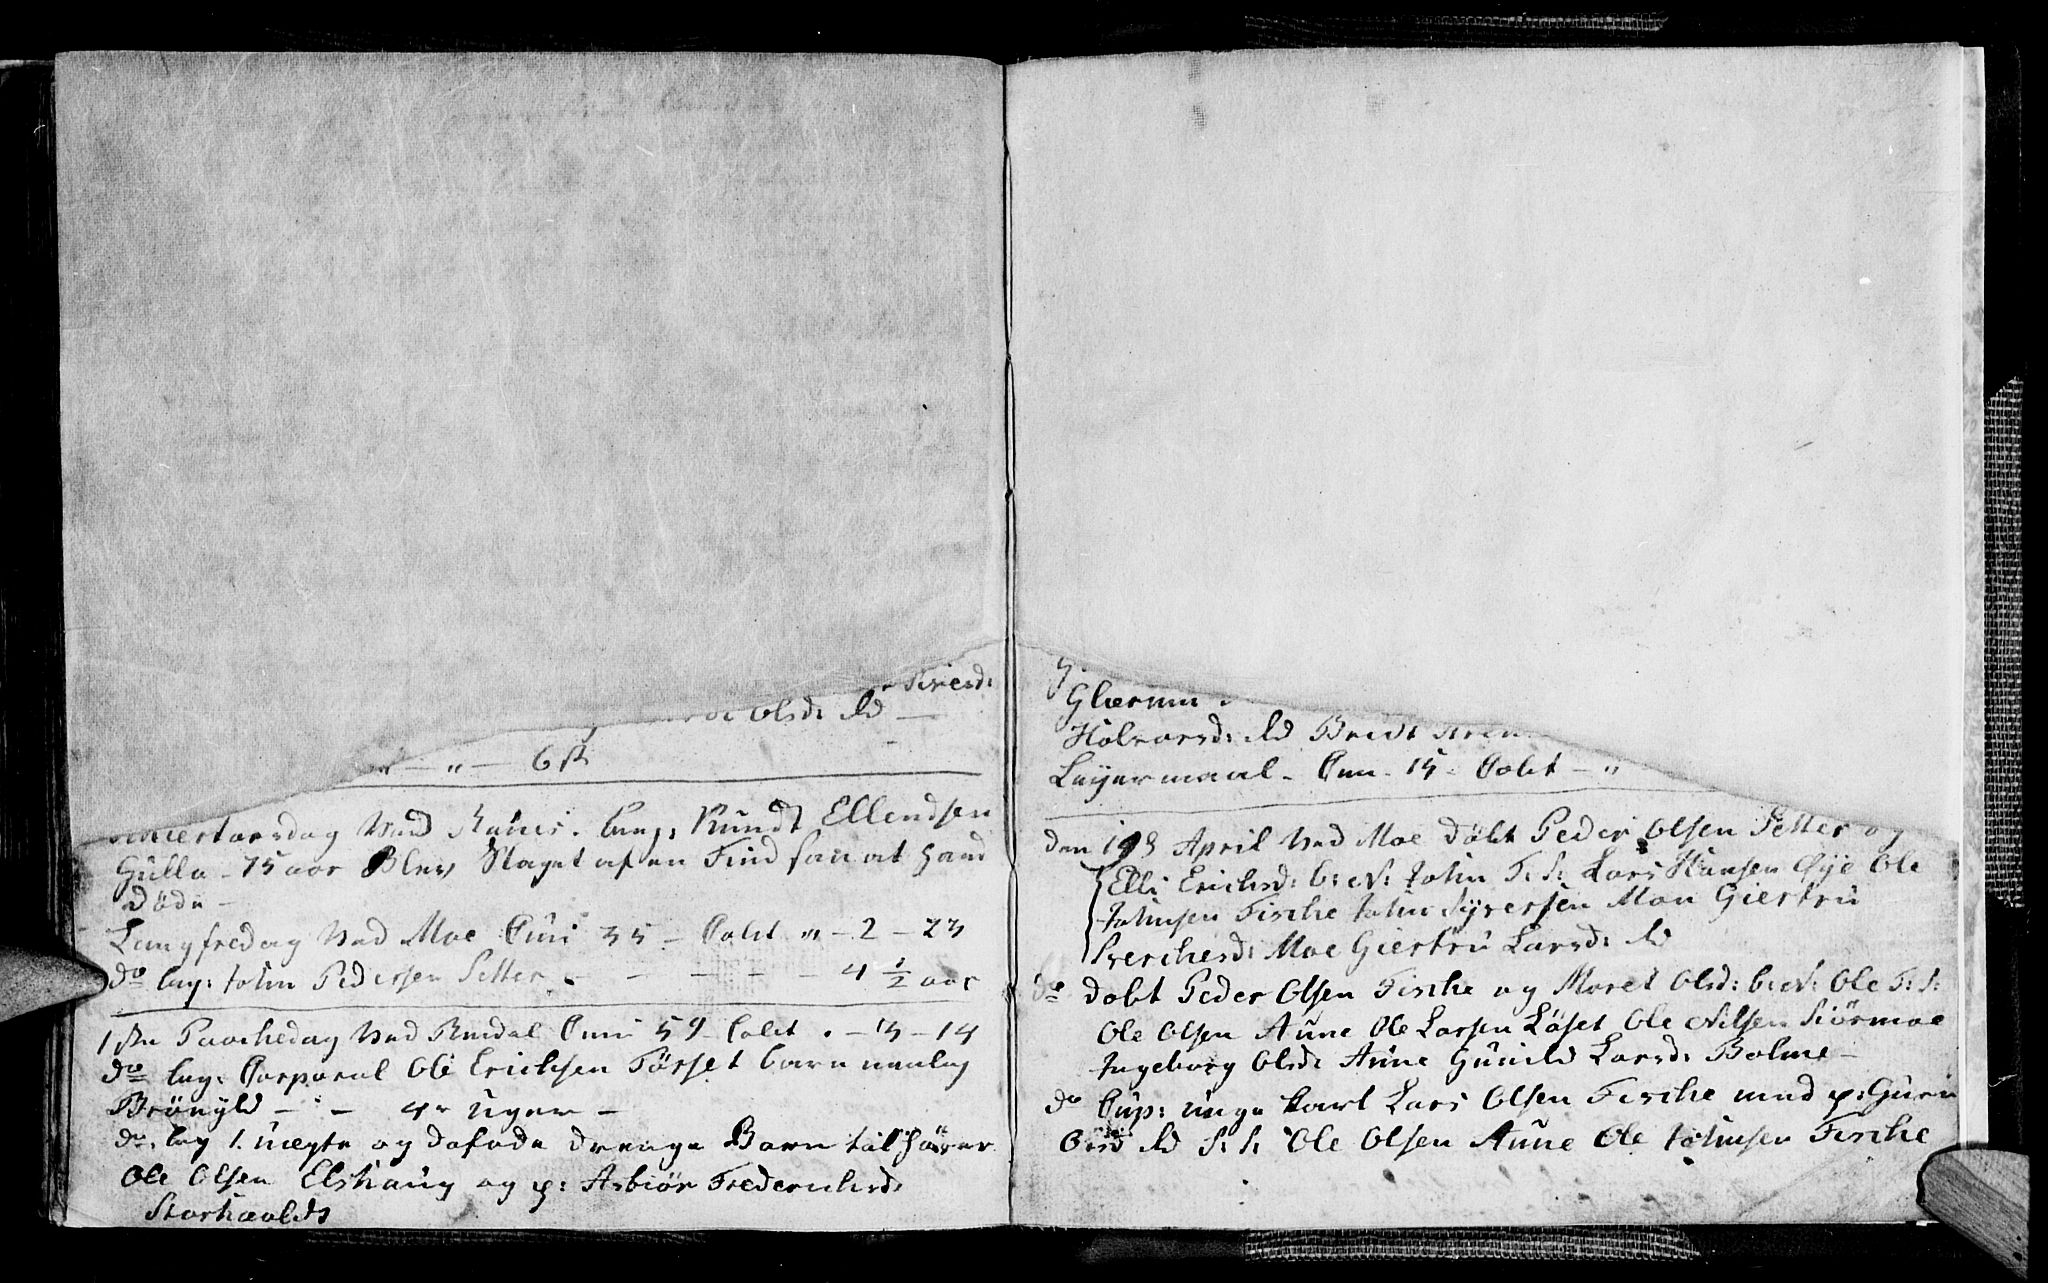 Olsd: Ad —
" — " — 6 ß
Skiertorsdag ved Ranes. beg: Knudt Ellendsen
Gulla - 75 aar Blev Slaget af en Find saa at hand
Døde -
Langfredag ved Moe Comm 35 - Colct " - 2 - 23
do beg: John Pedersen Setter - - - - - 4 1/2 aar
1ste Paaschedag ved Rindal Comm 59 Colct . - 3 - 14
do beg: Corporal Ole Erichsen Tørset barn
Brønyld - - 4re Uger -
do: beg 1. uægte og Døfødte Drenge Barn tilhører
Ole Olsen Elshaug og p: Asbiør Frederichsd:
Glærum
Holvorsd: Ad Bridt
Leyermaal - Comm - 15 - Colct - "
Den 19 April ved Moe Døbt Peder Olsen Setter og
Elli Erichsd: b: N: John F: S: Lars Hansen Øye Ole
Johnsen Fische John Syversen Moe Giertru
Sverchesd: Moe Giertru Larsd: Ad
do Døbt Peder Olsen Fische og Moret Olsd: b: N: Ole F: S:
Ole Olsen Aune Ole Larsen Løset Ole Nilsen Skiørmoe
Ingeborg Olsd: Aune Gunild Larsd: Bolme -
do Cop: unge karl Lars Olsen Fische med p: Guru
Olsd Ad S: S: Ole Olsen Aune Ole Johnsen Fische